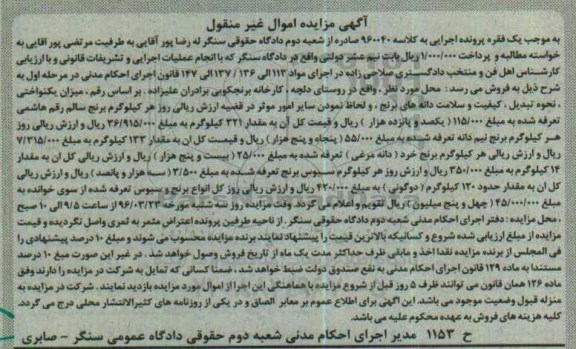 آگهی مزایده اموال غیر منقول
به موجب یک فقره پرونده اجرایی به کلاسه ۹۶۰۰۴۰ صادره از شعبه دوم دادگاه حقوقی سنگر له رضا پور آقایی به طرفیت مرتضی پور آقایی به
خواسته مطالبه و پرداخت ۱/۰۰۰/۰۰۰ ریال بابت نیم عشر دولتی واقع در دادگاه سنگر که با انجام عملیات اجرایی و تشریفات قانونی و با ارزیابی
کارشناس اهل فن و منتخب دادگستری صلاحی زاده در اجرای مواد ۱۱۳ الی ۱۳۶ / ۱۳۷ الی ۱۴۷ قانون اجرای احکام مدنی در مرحله اول به
شرح ذیل به فروش می رسد : محل مورد نظر ، واقع در روستای دلچه ، کارخانه برنجکوبی برادران علیزاده . بر اساس رقم ، میزان یکنواختی
، نحوه تبدیل ، کیفیت و سلامت دانه های برنج ، و لحاظ نمودن سایر امور موثر در قضیه ارزش ریالی روز هر کیلوگرم برنج سالم رقم هاشمی
تعرفه شده به مبلغ ۱۱۵/۰۰۰ ( یکصد و پانزده هزار ) ریال و قیمت کل آن به مقدار ۳۲۱ کیلوگرم به مبلغ ۳۶/۹۱۵/۰۰۰ ریال و ارزش ریالی روز
هر کیلوگرم برنج نیم دانه تعرفه شده به مبلغ ۵۵/۰۰۰ ( پنجاه و پنج هزار ) ریال و قیمت کل ان به مقدار ۱۳۳ کیلوگرم به مبلغ ۷/۳۱۵/۰۰۰
ریال و ارزش ریالی هر کیلوگرم برنج خرد ( دانه مرغی ) تعرفه شده به مبلغ ۲۵/۰۰۰ ( بیست و پنج هزار ) ریال و ارزش ریالی کل ان به مقدار
۱۴ کیلوگرم به مبلغ ۳۵۰/۰۰۰ ریال و ارزش روز هر کیلوگرم سبوس برنج تعرفه شده به مبلغ ۳/۵۰۰ ( سه هزار و پانصد ) ریال و ارزش ریالی
کل ان به مقدار حدود ۱۲۰ کیلوگرم ( دوگونی ) به مبلغ ۴۲۰/۰۰۰ ریال و ارزش ریالی روز کل انواع برنج و سبوس تعرفه شده از سوی خوانده به
۴۵/۰۰۰/۰۰۰ ( چهل و پنج میلیون ) ریال تقویم و اعلام می گردد. وقت مزایده روز سه شنبه مورخه ۹۶/۰۳/۲۳ از ساعت ۹/۵ الی ۱۰ صبح
، محل مزایده : دفتر اجرای احکام مدنی شعبه دوم دادگاه حقوقی سنگر . از ناحیه طرفین پرونده اعتراض مثمر به ثمری واصل نگردیده و قیمت
مزایده از مبلغ ارزیابی شده شروع و کسانیکه بالاترین قیمت را پیشنهاد نمایند برنده مزایده محسوب می شوند و مبلغ ۱۰ درصد پیشنهادی را
فی المجلس از برنده مزایده نقدا اخذ و مابقی ظرف حداکثر مدت یک ماه از تاریخ فروش وصول خواهد شد . در غیر این صورت مبلغ ۱۰ درصد
مستندا به ماده ۱۲۹ قانون اجرای احکام مدنی به نفع صندوق دولت ضبط خواهد شد ، ضمنا کسانی که تمایل به شرکت در مزایده را دارند وفق
ماده ۱۲۶ همان قانون می توانند ظرف ۵ روز قبل از شروع مزایده با هماهنگی این اجرا از اموال مورد مزایده بازدید نمایند . شرکت در مزایده به
منزله قبول وضعیت موجود می باشد. این آگهی برای اطلاع عموم بر معابر الصاق و در یکی از روزنامه های کثیرالانتشار محلی درج می گردد.
کلیه هزینه های فروش به عهده محکوم علیه می باشد.
ح ۱۱۵۳ مدیر اجرای احکام مدنی شعبه دوم حقوقی دادگاه عمومی سنگر – صابری